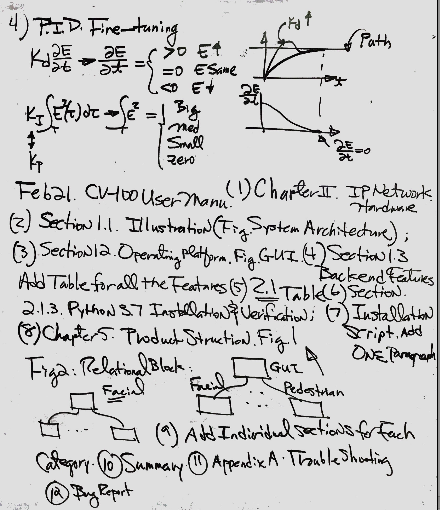 4) P.I.D. Fine-tuning
Kd↑
Path
Kd ∂E/∂t → ∂E/∂t = { >0 E↑
=0 E Same
<0 E↓
t
∂E/∂t
K_I ∫E²(τ)dτ → ∫E² = { Big
med
Small
zero
Kp
∂E/∂t=0
Feb21. CV-100 User Manu. (1) Chapter II. IP Network
Hardware
(2) Section 1.1. Illustration (Fig. System Architecture) ;
(3) Section 1.2. Operating Platform. Fig. GUI. (4) Section 1.3
Backend Features
Add Table for all the Features (5) 2.1 Table (6) Section.
2.1.3. Python 3.7 Installation & Verification; (7) Installation
Script. Add
ONE Paragraph
(8) Chapter 5. Product Struction. Fig. 1
Fig 2: Relational Block:
GUI
Facial
Facial
Pedestrian
...
...
(9) Add Individual sections for Each
Category. (10) Summary (11) Appendix A. Trouble Shooting
(12) Bug Report